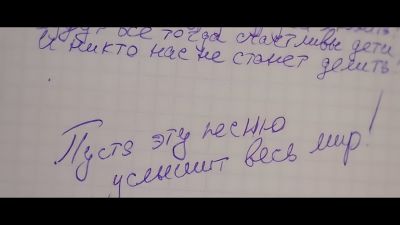 все тогда счастливы дети
И никто нас не станет делить!
Пусть эту песню
услышит весь мир!